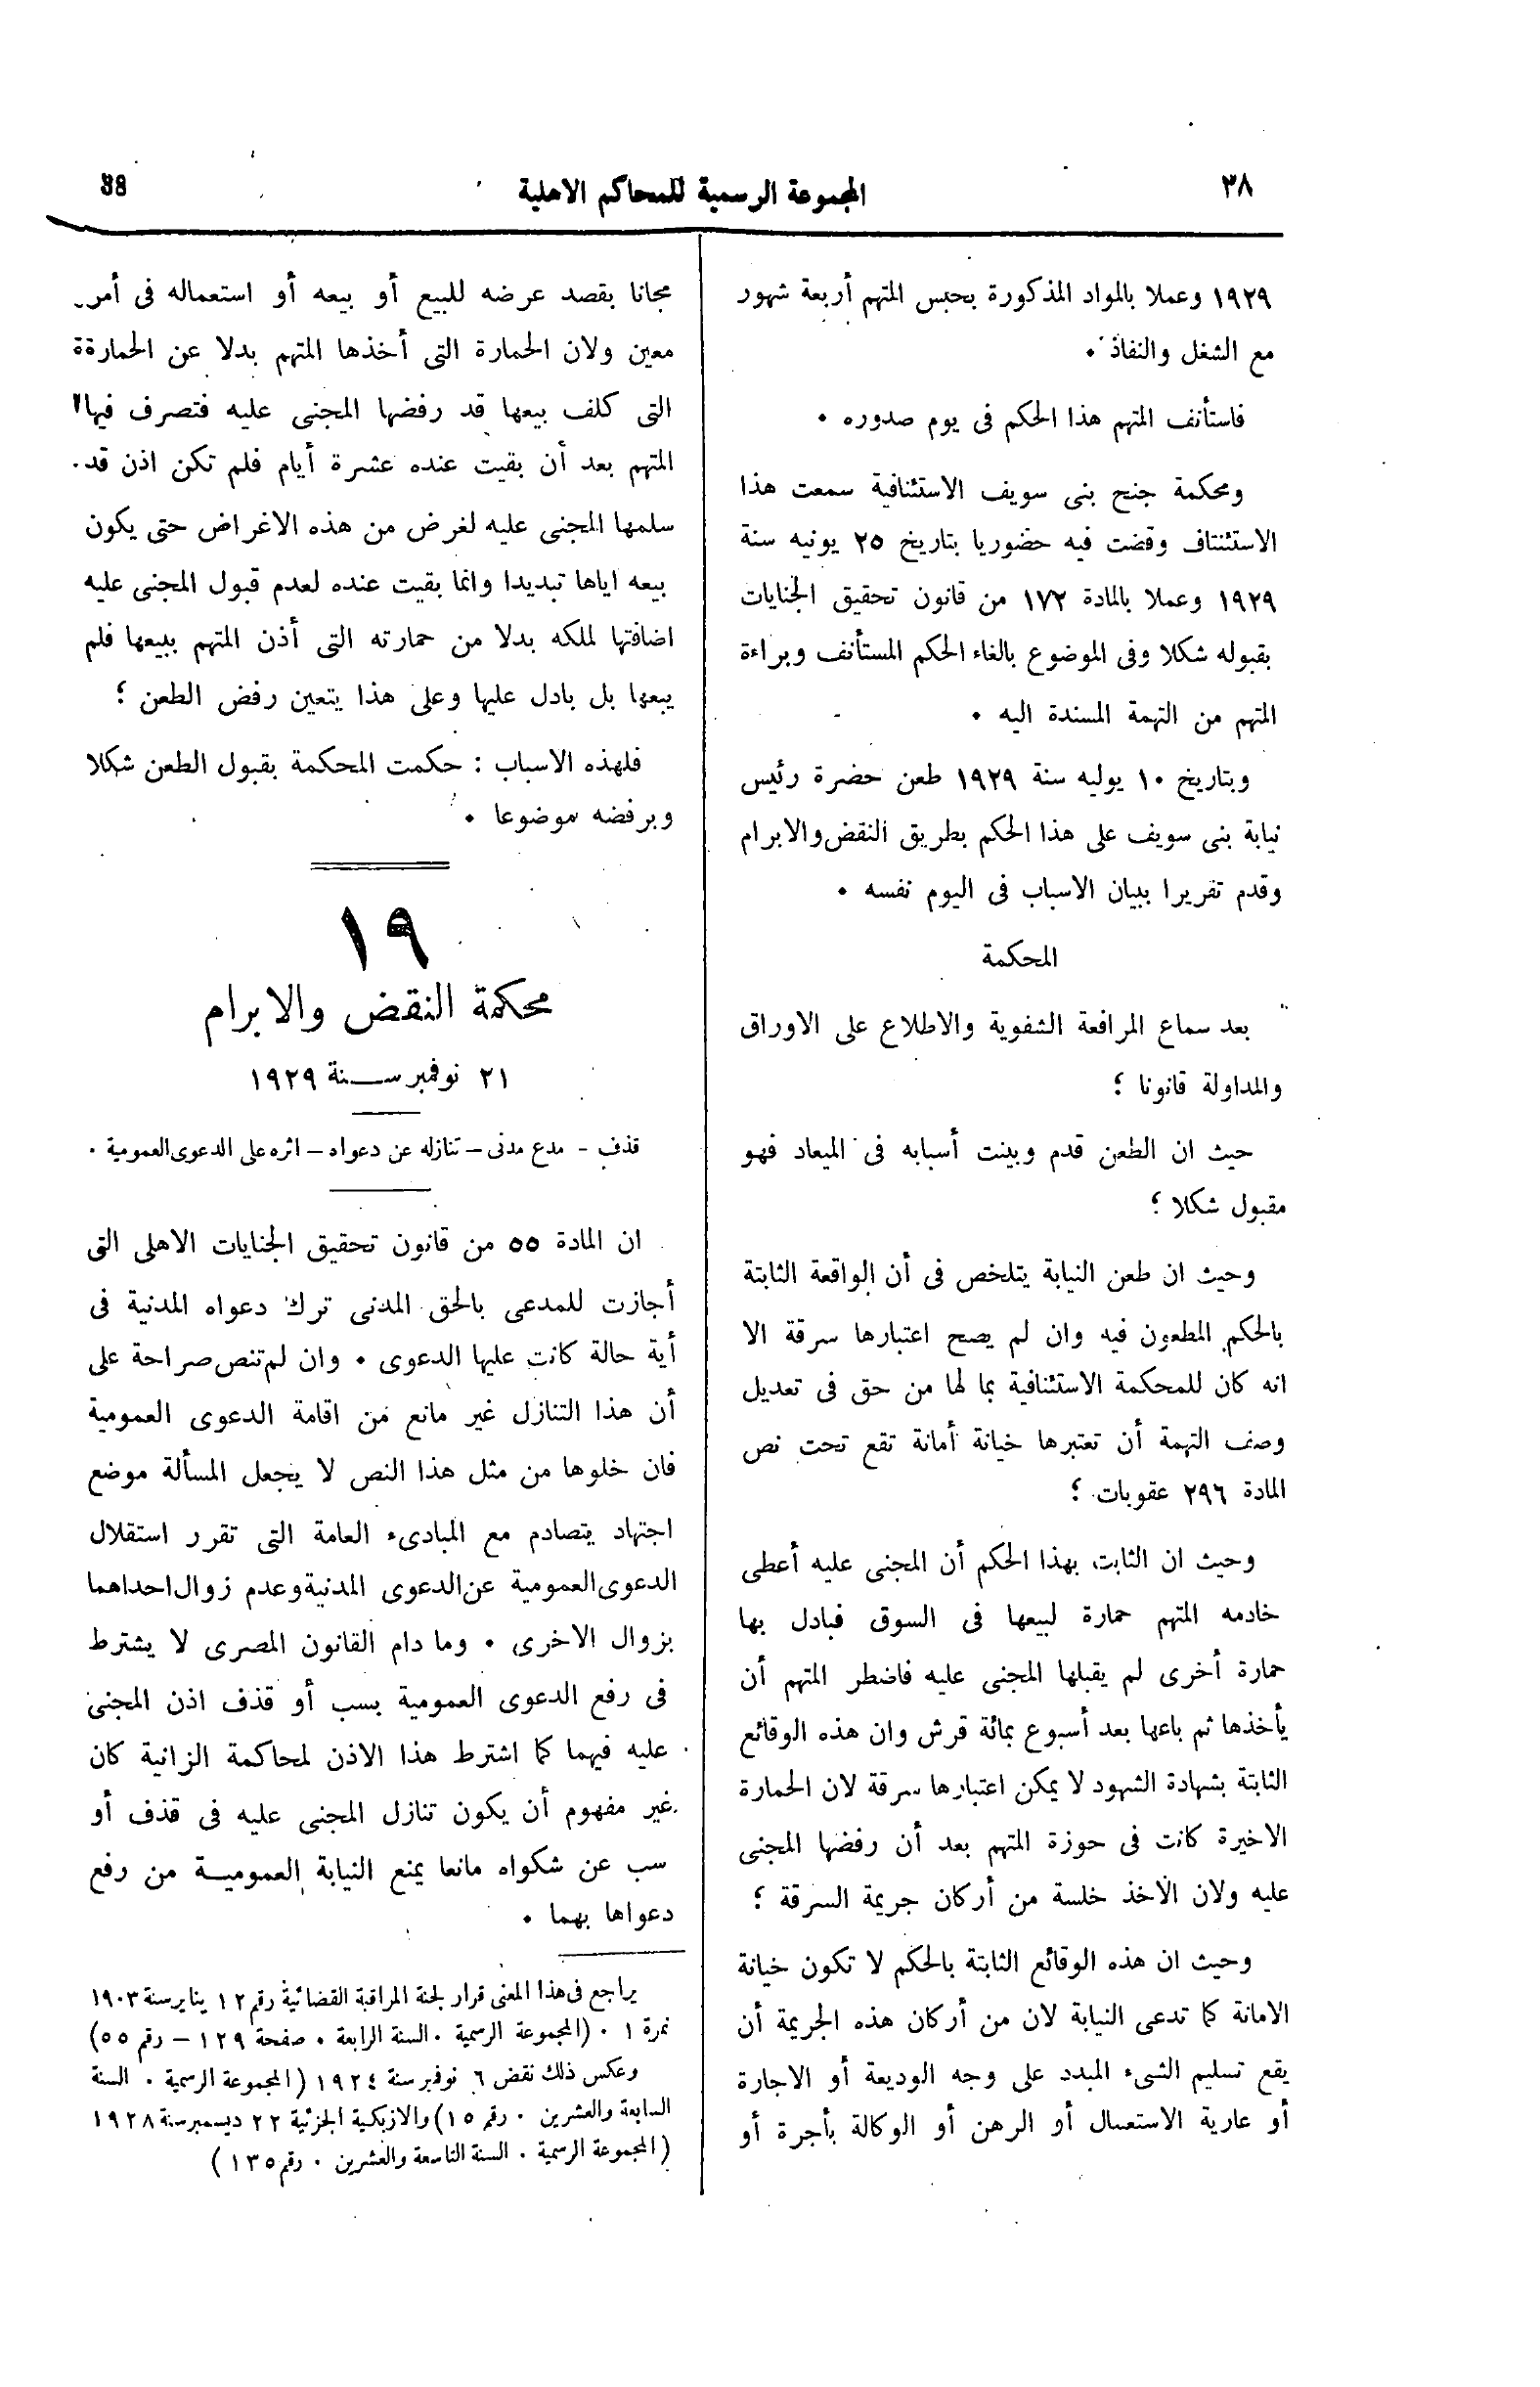 ٣٨
المجموعة الرسمية للمحاكم الاهلية
38
١٩٢٩ وعملا بالمواد المذكورة بحبس المتهم أربعة شهور
مع الشغل والنفاذ ٠
فاستأنف المتهم هذا الحكم فى يوم صدوره ٠
ومحكمة جنح بنى سويف الاستئنافية سمعت هذا
الاستئناف وقضت فيه حضوريا بتاريخ ٢٥ يونيه سنة
١٩٢٩ وعملا بالمادة ١٧٢ من قانون تحقيق الجنايات
بقبوله شكلا وفى الموضوع بالغاء الحكم المستأنف وبراءة
المتهم من التهمة المسندة اليه ٠
وبتاريخ ١٠ يوليه سنة ١٩٢٩ طعن حضرة رئيس
نيابة بنى سويف على هذا الحكم بطريق النقض والابرام
وقدم تقريرا ببيان الاسباب فى اليوم نفسه ٠
المحكمة
بعد سماع المرافعة الشفوية والاطلاع على الاوراق
والمداولة قانونا ؛
حيث ان الطعن قدم وبينت أسبابه فى الميعاد فهو
مقبول شكلا ؛
وحيث ان طعن النيابة يتلخص فى أن الواقعة الثابتة
بالحكم المطعون فيه وان لم يصح اعتبارها سرقة الا
انه كان للمحكمة الاستئنافية بما لها من حق فى تعديل
وصف التهمة أن تعتبرها خيانة أمانة تقع تحت نص
المادة ٢٩٦ عقوبات ؛
وحيث ان الثابت بهذا الحكم أن المجنى عليه أعطى
خادمه المتهم حمارة لبيعها فى السوق فبادل بها
حمارة أخرى لم يقبلها المجنى عليه فاضطر المتهم أن
يأخذها ثم باعها بعد أسبوع بمائة قرش وان هذه الوقائع
الثابتة بشهادة الشهود لا يمكن اعتبارها سرقة لان الحمارة
الاخيرة كانت فى حوزة المتهم بعد أن رفضها المجنى
عليه ولان الاخذ خلسة من أركان جريمة السرقة ؛
وحيث ان هذه الوقائع الثابتة بالحكم لا تكون خيانة
الامانة كما تدعى النيابة لان من أركان هذه الجريمة أن
يقع تسليم الشىء المبدد على وجه الوديعة أو الاجارة
أو عارية الاستعمال أو الرهن أو الوكالة بأجرة أو
مجانا بقصد عرضه للبيع أو بيعه أو استعماله فى أمر
معين ولان الحمارة التى أخذها المتهم بدلا عن الحمارة
التى كلف بيعها قد رفضها المجنى عليه فتصرف فيها
المتهم بعد أن بقيت عنده عشرة أيام فلم تكن اذن قد
سلمها المجنى عليه لغرض من هذه الاغراض حتى يكون
بيعه اياها تبديدا وانما بقيت عنده لعدم قبول المجنى عليه
اضافتها لملكه بدلا من حمارته التى أذن المتهم ببيعها فلم
يبعها بل بادل عليها وعلى هذا يتعين رفض الطعن ؛
فلهذه الاسباب : حكمت المحكمة بقبول الطعن شكلا
وبرفضه موضوعا ٠
١٩
محكمة النقض والابرام
٢١ نوفمبر سنة ١٩٢٩
قذف - مدع مدنى - تنازله عن دعواه - اثره على الدعوى العمومية ٠
ان المادة ٥٥ من قانون تحقيق الجنايات الاهلى التى
أجازت للمدعى بالحق المدنى ترك دعواه المدنية فى
أية حالة كانت عليها الدعوى ٠ وان لم تنص صراحة على
أن هذا التنازل غير مانع من اقامة الدعوى العمومية
فان خلوها من مثل هذا النص لا يجعل المسألة موضع
اجتهاد يتصادم مع المبادىء العامة التى تقرر استقلال
الدعوى العمومية عن الدعوى المدنية وعدم زوال احداهما
بزوال الاخرى ٠ وما دام القانون المصرى لا يشترط
فى رفع الدعوى العمومية بسب أو قذف اذن المجنى
عليه فيهما كما اشترط هذا الاذن لمحاكمة الزانية كان
غير مفهوم أن يكون تنازل المجنى عليه فى قذف أو
سب عن شكواه مانعا يمنع النيابة العمومية من رفع
دعواها بهما ٠
يراجع فى هذا المعنى قرار لجنة المراقبة القضائية رقم ١٢ يناير سنة ١٩٠٣
نمرة ١ ٠ (المجموعة الرسمية ٠ السنة الرابعة ٠ صفحة ١٢٩ - رقم ٥٥)
وعكس ذلك نقض ٦ نوفمبر سنة ١٩٢٤ (المجموعة الرسمية ٠ السنة
السابعة والعشرين ٠ رقم ١٥) والازبكية الجزئية ٢٢ ديسمبر سنة ١٩٢٨
(المجموعة الرسمية ٠ السنة التاسعة والعشرين ٠ رقم ١٣٥)